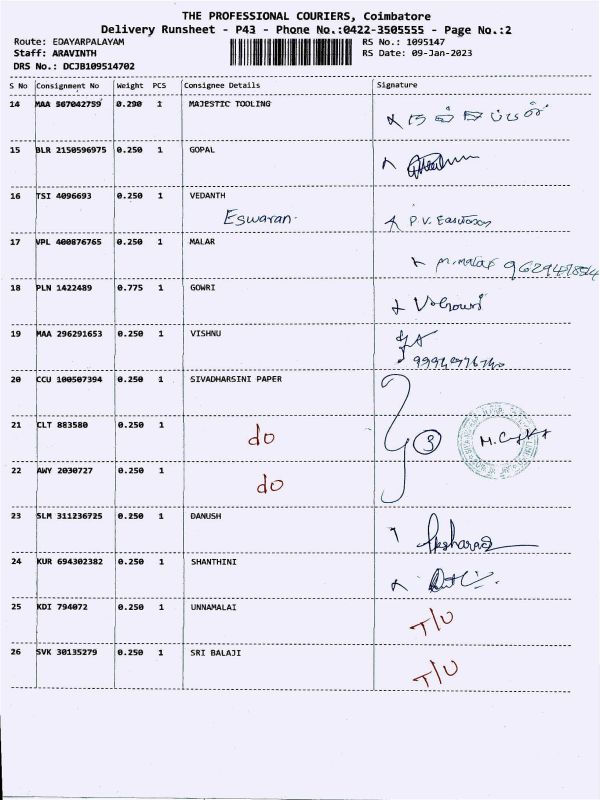 THE PROFESSIONAL COURIERS, Coimbatore
Delivery Runsheet - P43 - Phone No.:0422-3505555 - Page No.:2
Route: EDAYARPALAYAM RS No.: 1095147
Staff: ARAVINTH RS Date: 09-Jan-2023
DRS No.: DCJB109514702
S No Consignment No Weight PCS Consignee Details Signature
14 MAA 567042759 0.290 1 MAJESTIC TOOLING
15 BLR 2150596975 0.250 1 GOPAL
16 TSI 4096693 0.250 1 VEDANTH
Eswaran. P.V. Easwaran
17 VPL 400876765 0.250 1 MALAR
M. Malar
18 PLN 1422489 0.775 1 GOWRI
19 MAA 296291653 0.250 1 VISHNU
20 CCU 100507394 0.250 1 SIVADHARSINI PAPER
21 CLT 883580 0.250 1 do 3
22 AWY 2030727 0.250 1 do
23 SLM 311236725 0.250 1 DANUSH
24 KUR 694302382 0.250 1 SHANTHINI
25 KDI 794072 0.250 1 UNNAMALAI T/U
26 SVK 30135279 0.250 1 SRI BALAJI T/U